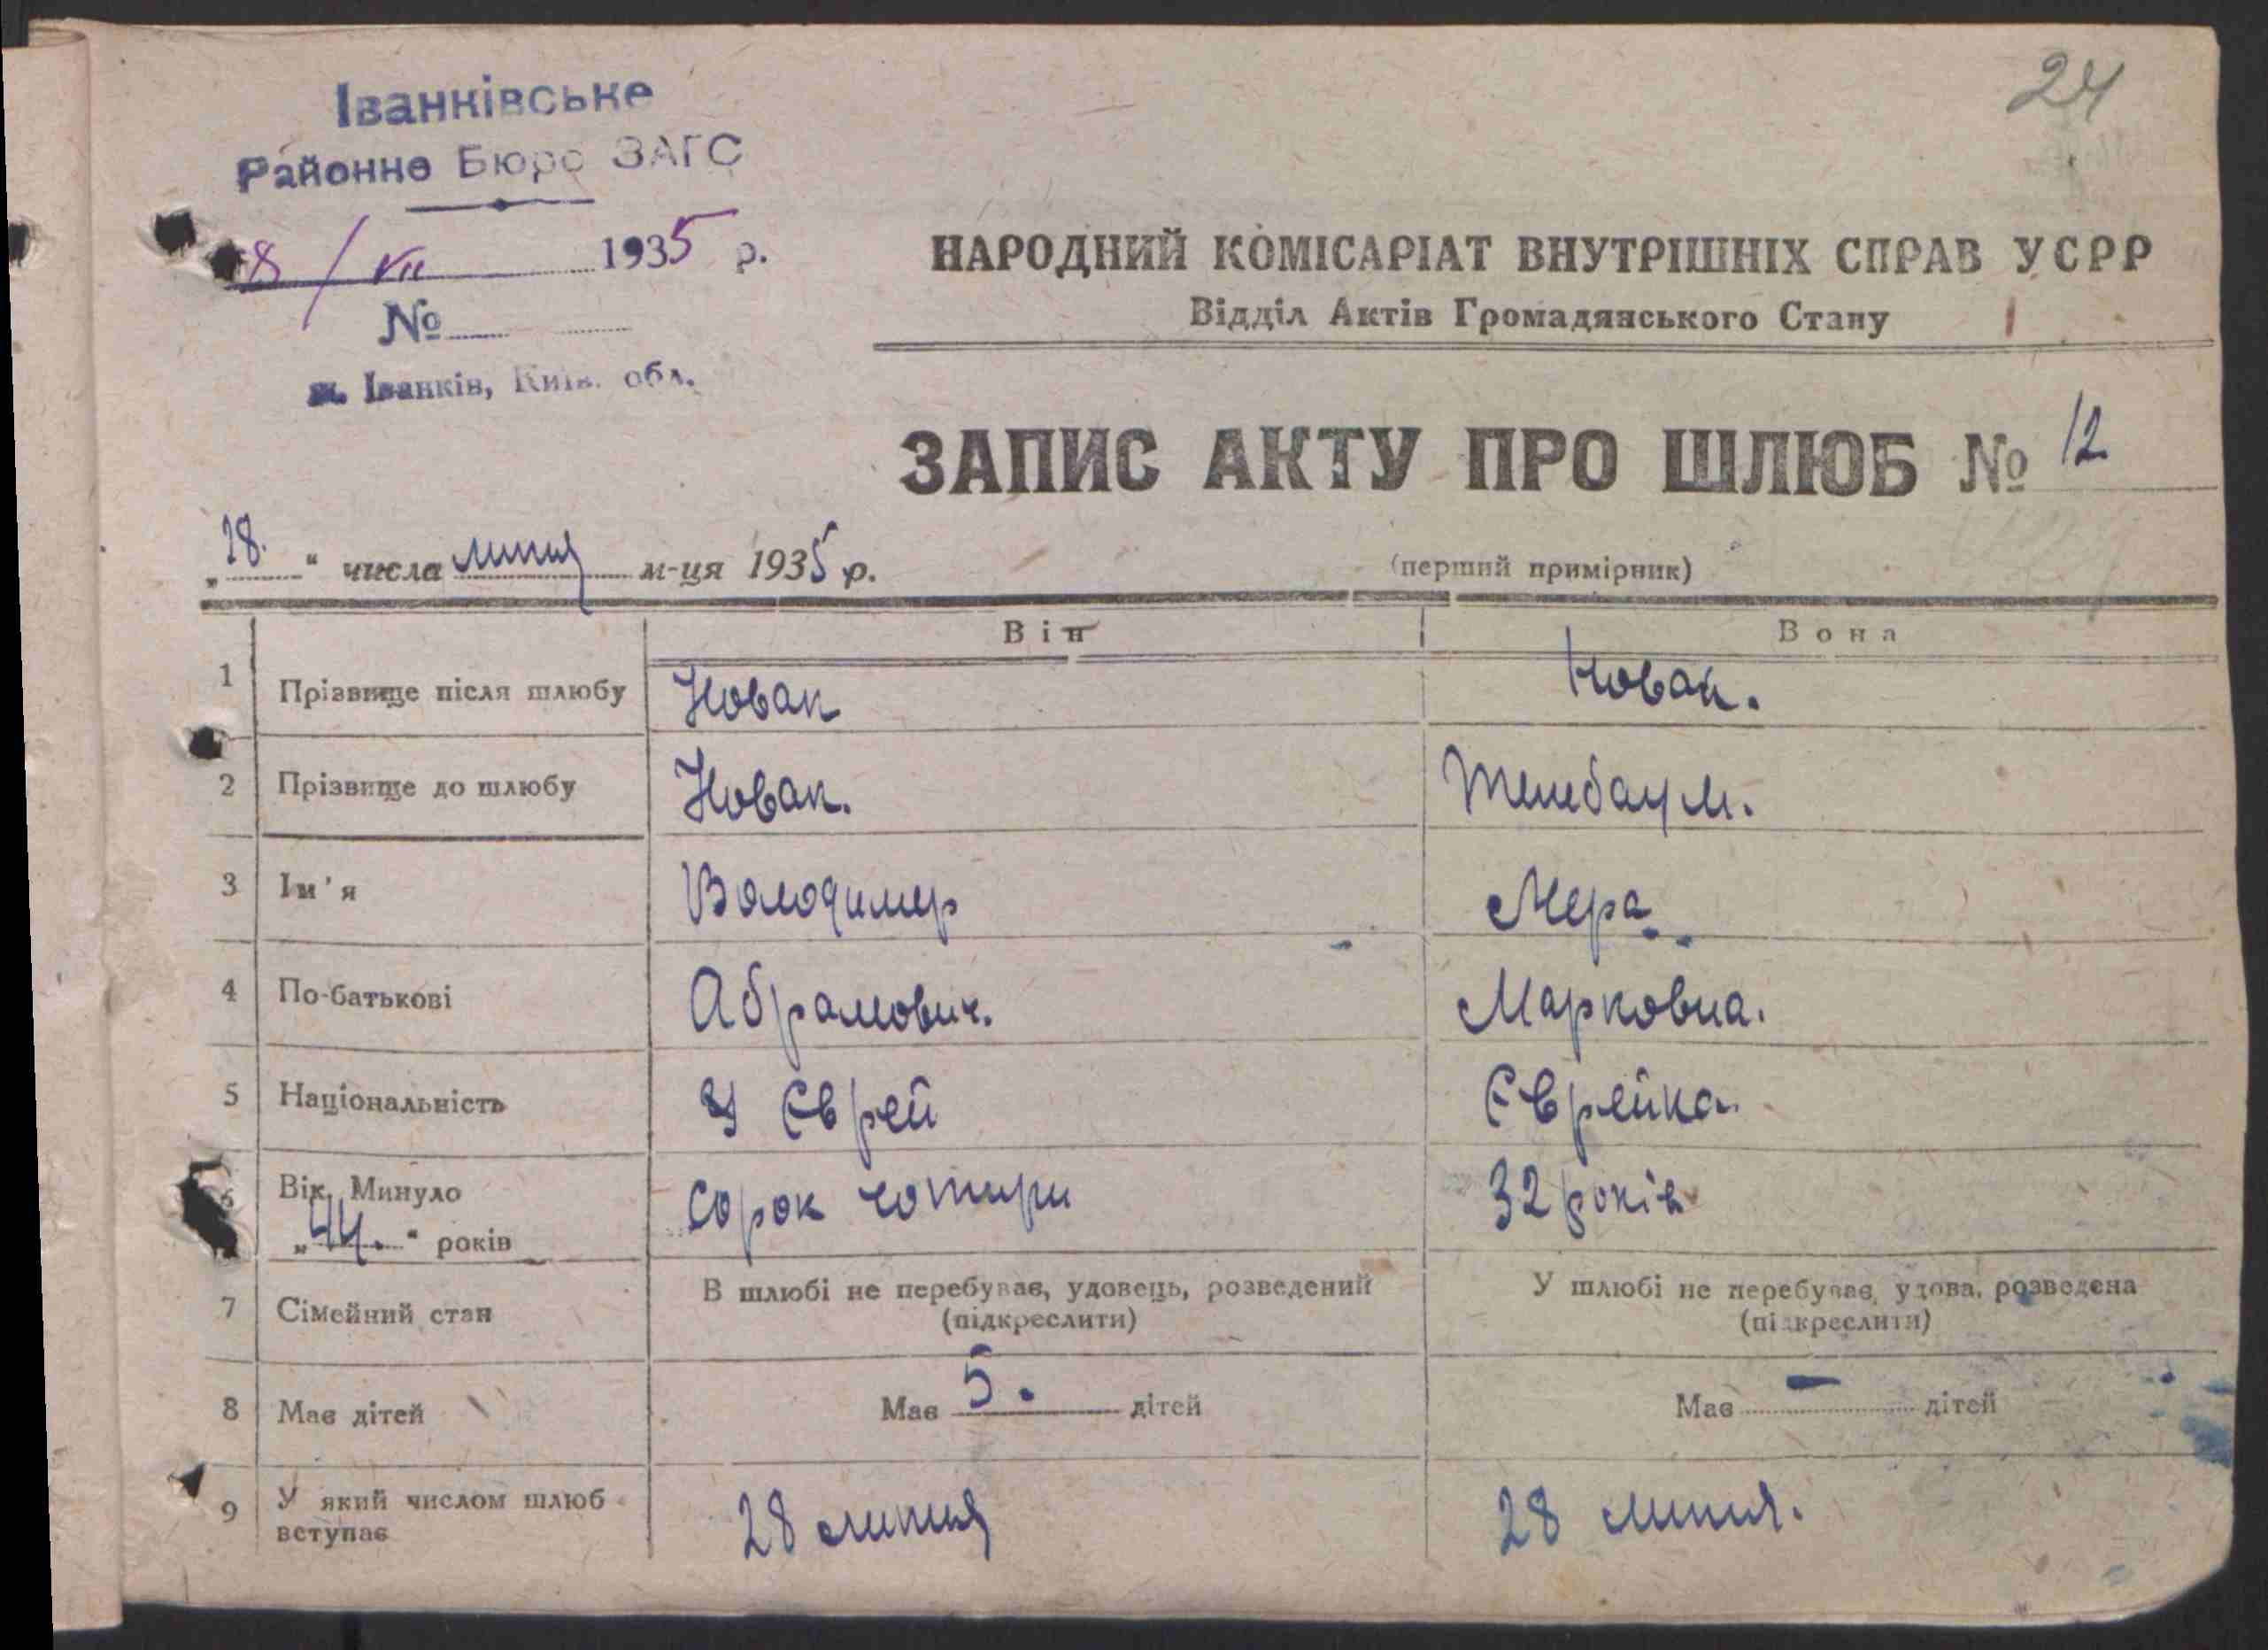 24
Іванківське
Районне Бюро ЗАГС
28/VII 1935 р.
№
м. Іванків, Київ. обл.
НАРОДНИЙ КОМІСАРІАТ ВНУТРІШНІХ СПРАВ УСРР
Відділ Актів Громадянського Стану
ЗАПИС АКТУ ПРО ШЛЮБ № 12
„28.“ числа липня м-ця 1935 р.
(перший примірник)
Він Вона
1 Прізвище після шлюбу Новак Новак.
2 Прізвище до шлюбу Новак. Тененбаум.
3 Ім'я Володимер Мера
4 По-батькові Абрамович. Марковна.
5 Національність Єврей Єврейка
6 Вік. Минуло сорок чотири 32 років
„44.“ років
7 Сімейний стан В шлюбі не перебував, удовець, розведений У шлюбі не перебував, удова, розведена
(підкреслити) (підкреслити)
8 Має дітей Має 5. дітей Має — дітей
9 У який числом шлюб 28 липня 28 липня.
вступає